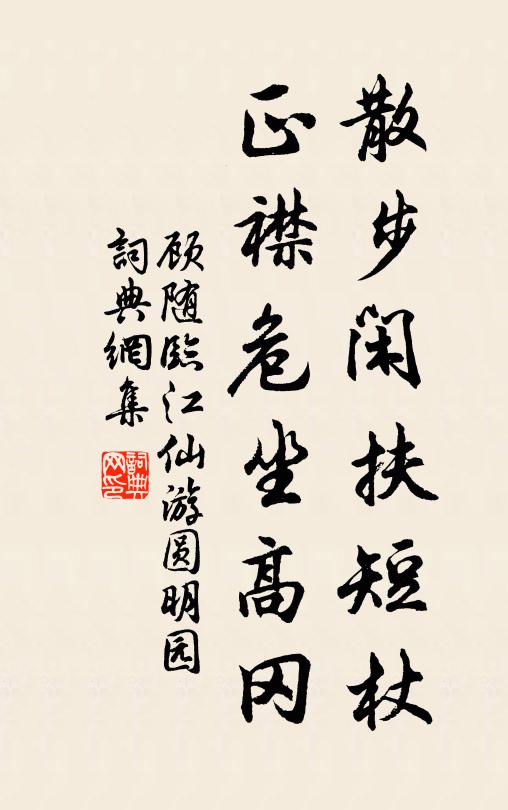 散步闲扶短杖
正襟危坐高冈
顾随临江仙游圆明园
詞典網集
詞典网印